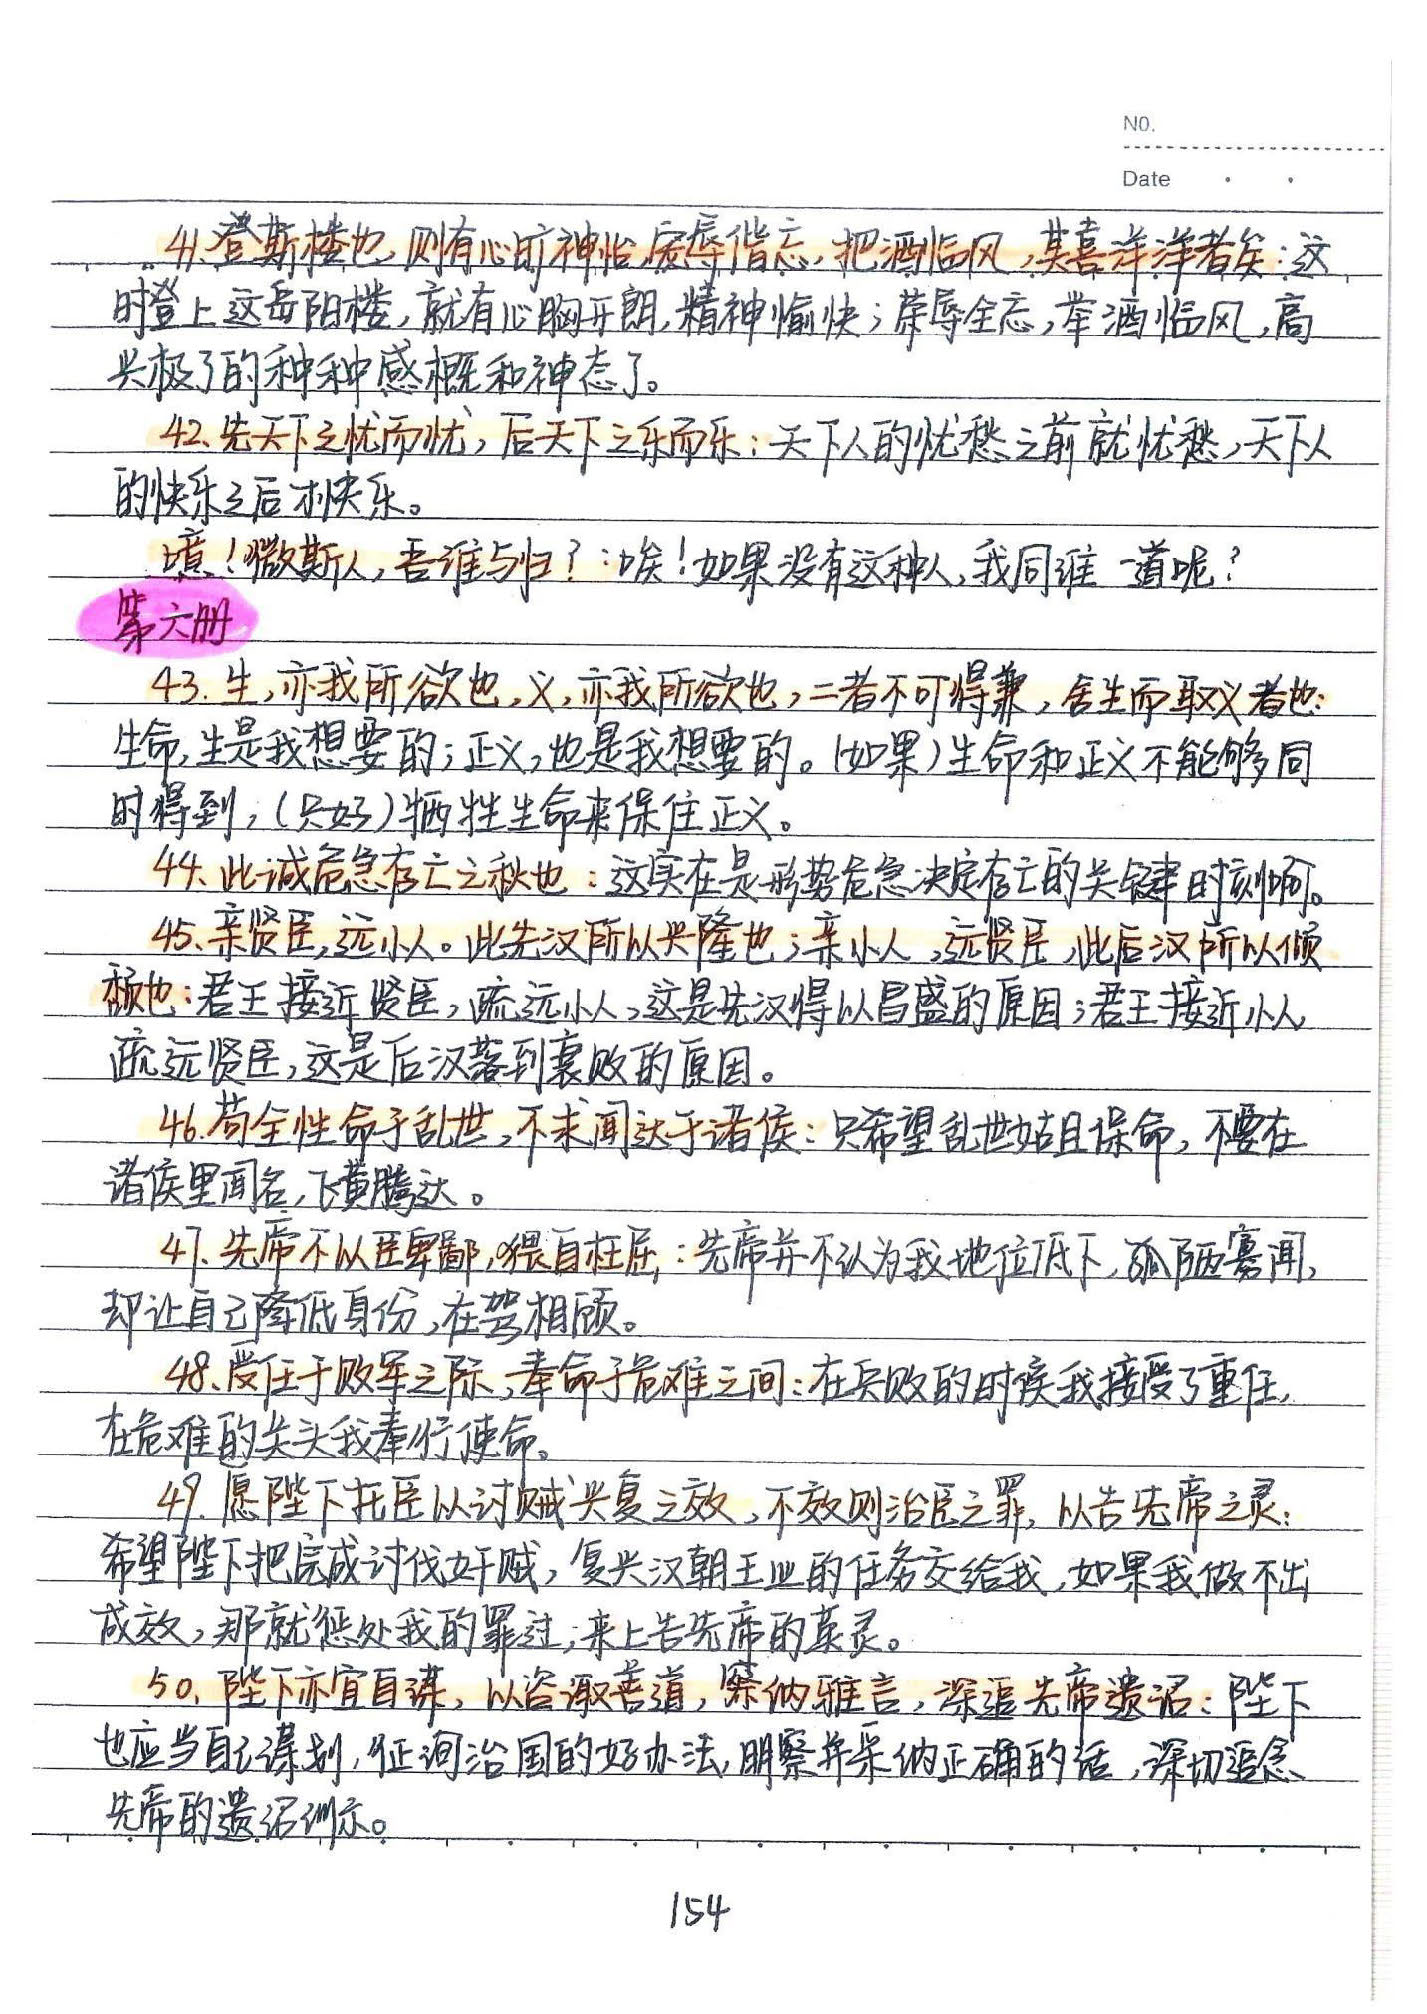 NO.
Date
41.登斯楼也,则有心旷神怡,宠辱偕忘,把酒临风,其喜洋洋者矣:这
时登上这岳阳楼,就有心胸开朗,精神愉快;荣辱全忘,举酒临风,高
兴极了的种种感概和神态了。
42、先天下之忧而忧,后天下之乐而乐:天下人的忧愁之前就忧愁,天下人
的快乐之后才快乐。
噫!微斯人,吾谁与归?:唉!如果没有这种人,我同谁一道呢?
第六册
43.生,亦我所欲也,义,亦我所欲也,二者不可得兼,舍生而取义者也:
生命,生是我想要的;正义,也是我想要的。(如果)生命和正义不能够同
时得到,(只好)牺牲生命来保住正义。
44、此诚危急存亡之秋也:这实在是形势危急决定存亡的关键时刻啊。
45、亲贤臣,远小人。此先汉所以兴隆也;亲小人,远贤臣,此后汉所以倾
颓也:君王接近贤臣,疏远小人,这是先汉得以昌盛的原因;君王接近小人,
疏远贤臣,这是后汉落到衰败的原因。
46.苟全性命于乱世,不求闻达于诸侯:只希望乱世姑且保命,不要在
诸侯里闻名,飞黄腾达。
47.先帝不以臣卑鄙,猥自枉屈,:先帝并不认为我地位低下,孤陋寡闻,
却让自己降低身份,在驾相顾。
48、受任于败军之际,奉命于危难之间:在兵败的时候我接受了重任,
在危难的关头我奉行使命。
49.愿陛下托臣以讨贼兴复之效,不效则治臣之罪,以告先帝之灵:
希望陛下把完成讨伐奸贼,复兴汉朝王业的任务交给我,如果我做不出
成效,那就惩处我的罪过,来上告先帝的英灵。
50.陛下亦宜自谋,以咨诹善道,察纳雅言,深追先帝遗诏:陛下
也应当自己谋划,征询治国的好办法,明察并采纳正确的话,深切追念
先帝的遗诏训示。
154